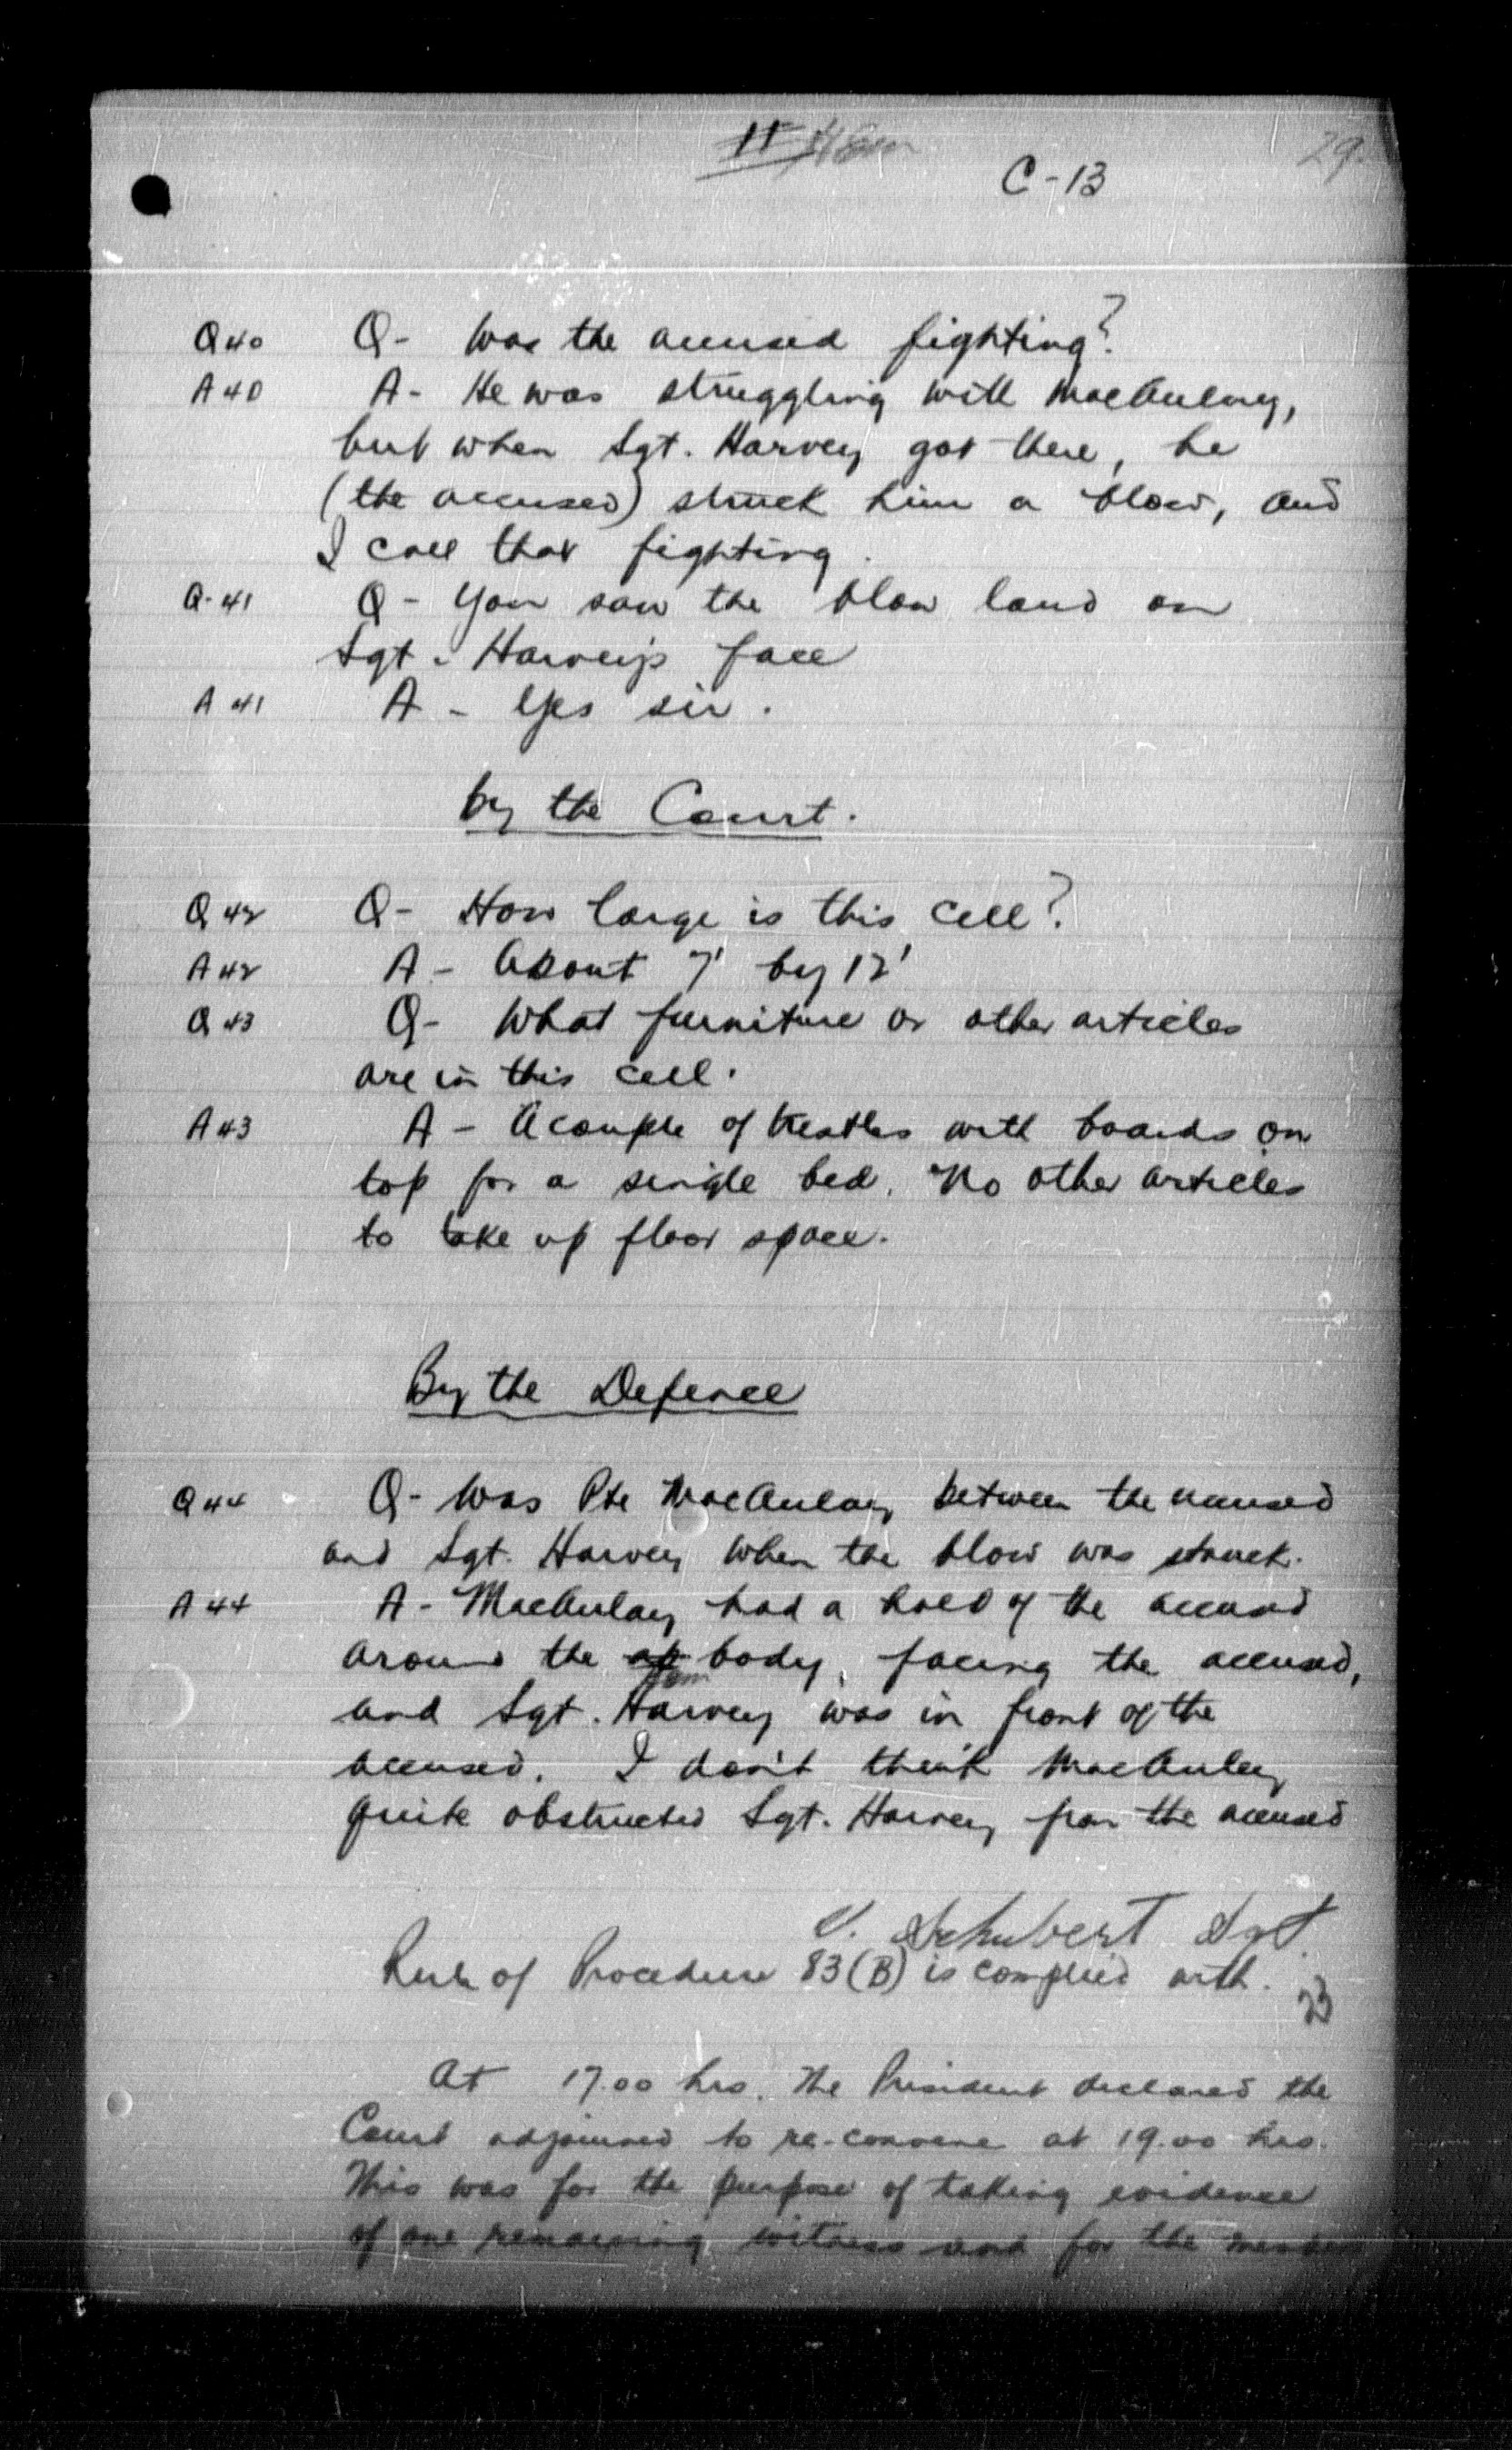 C-13
29.
Q40 Q- Was the accused fighting?
A40 A- He was struggling with MacAulay,
but when Sgt. Harvey got there, he
(the accused) struck him a blow, and
I call that fighting.
Q-41 Q- You saw the blow land on
Sgt. Harvey's face
A41 A- Yes sir.
by the Court.
Q42 Q- How large is this cell?
A42 A- About 7' by 12'
Q43 Q- What furniture or other articles
are in this cell.
A43 A- A couple of trestles with boards on
top for a single bed. No other articles
to take up floor space.
By the Defence
Q44 Q- Was Pte MacAulay between the accused
and Sgt. Harvey when the blow was struck.
A44 A- MacAulay had a hold of the accused
around the body, facing the accused,
and Sgt. Harvey was in front of the
accused. I don't think MacAulay
quite obstructed Sgt. Harvey from the accused
V. Schubert Sgt.
Rule of Procedure 83(B) is complied with.
At 17.00 hrs. the President declared the
Court adjourned to re-convene at 19.00 hrs.
This was for the purpose of taking evidence
of one remaining witness and for the